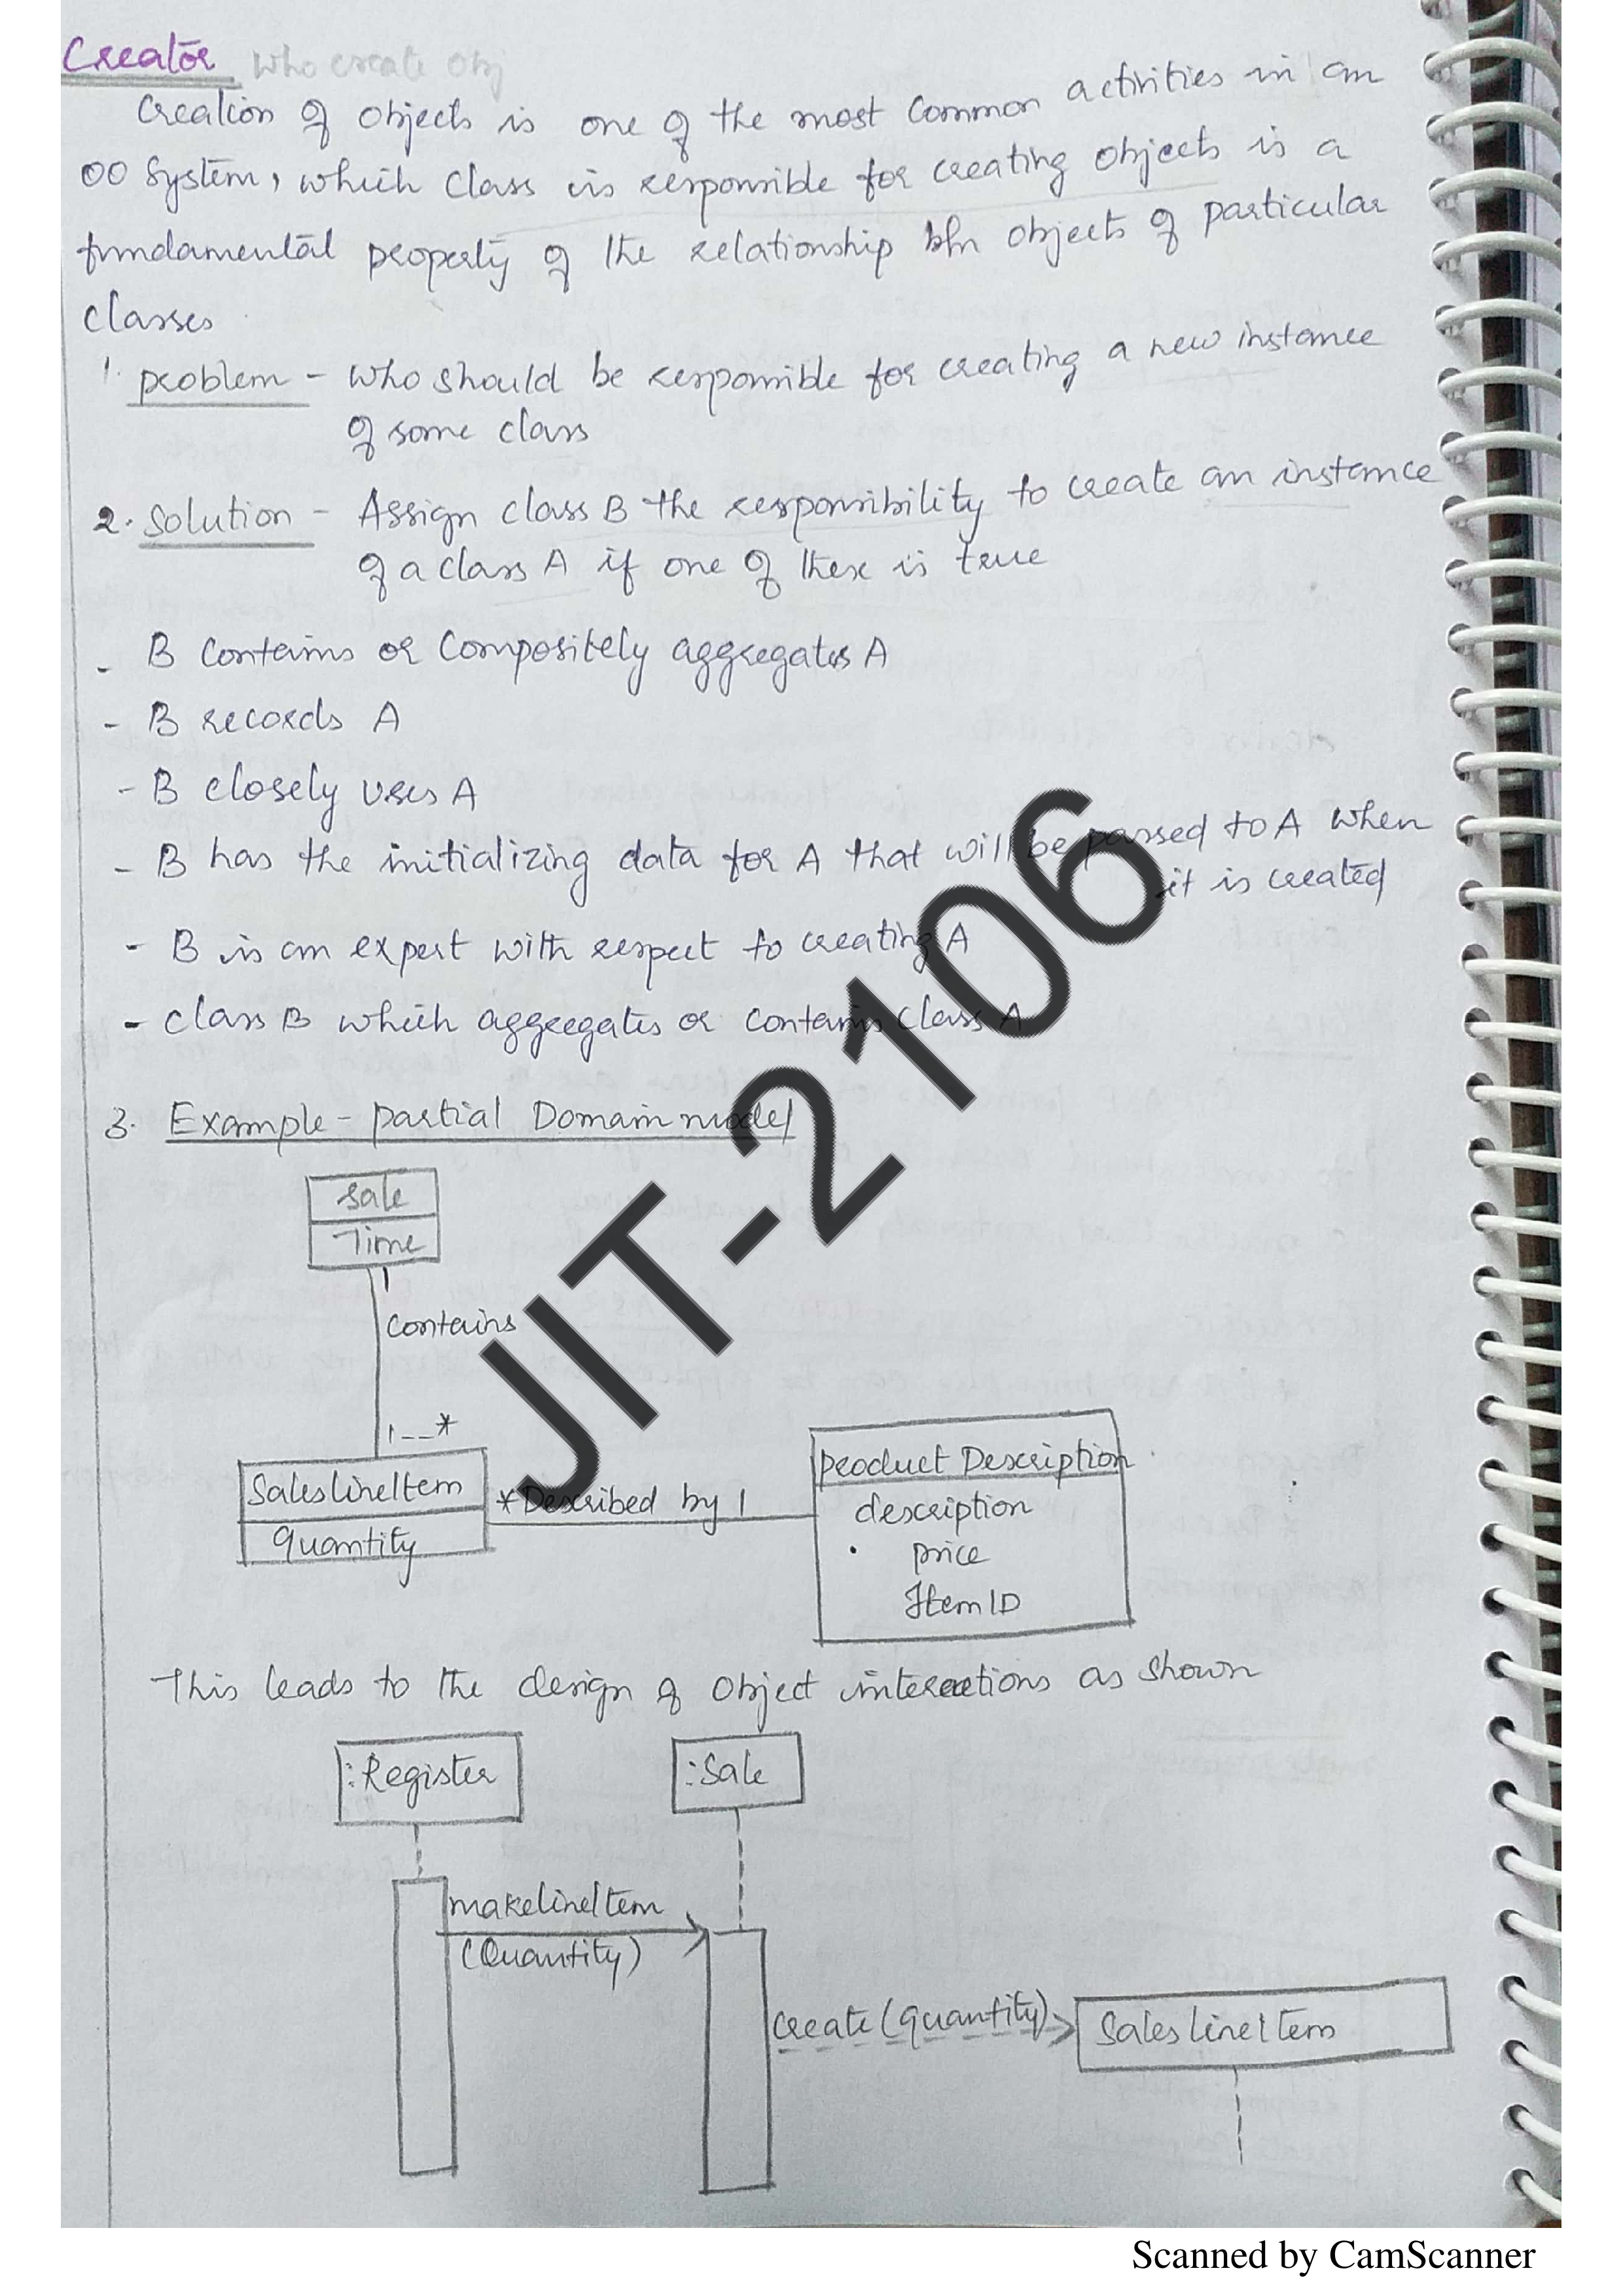 Creator who create obj
Creation of objects is one of the most common activities in an
OO system, which class is responsible for creating objects is a
fundamental property of the relationship b/n objects of particular
classes
1. problem - who should be responsible for creating a new instance
of some class
2. Solution - Assign class B the responsibility to create an instance
of a class A if one of these is true
- B contains or compositely aggregates A
- B records A
- B closely uses A
- B has the initializing data for A that will be passed to A when
it is created
- B is an expert with respect to creating A
- class B which aggregates or contains class A
3. Example - partial Domain model
Sale
Time
1
contains
1--*
SaleslineItem
quantity
* Described by 1
product Description
description
price
ItemID
This leads to the design of object interactions as shown
:Register
:Sale
makelineItem
(Quantity)
create (quantity)
Sales lineItem
JIT-2106
Scanned by CamScanner